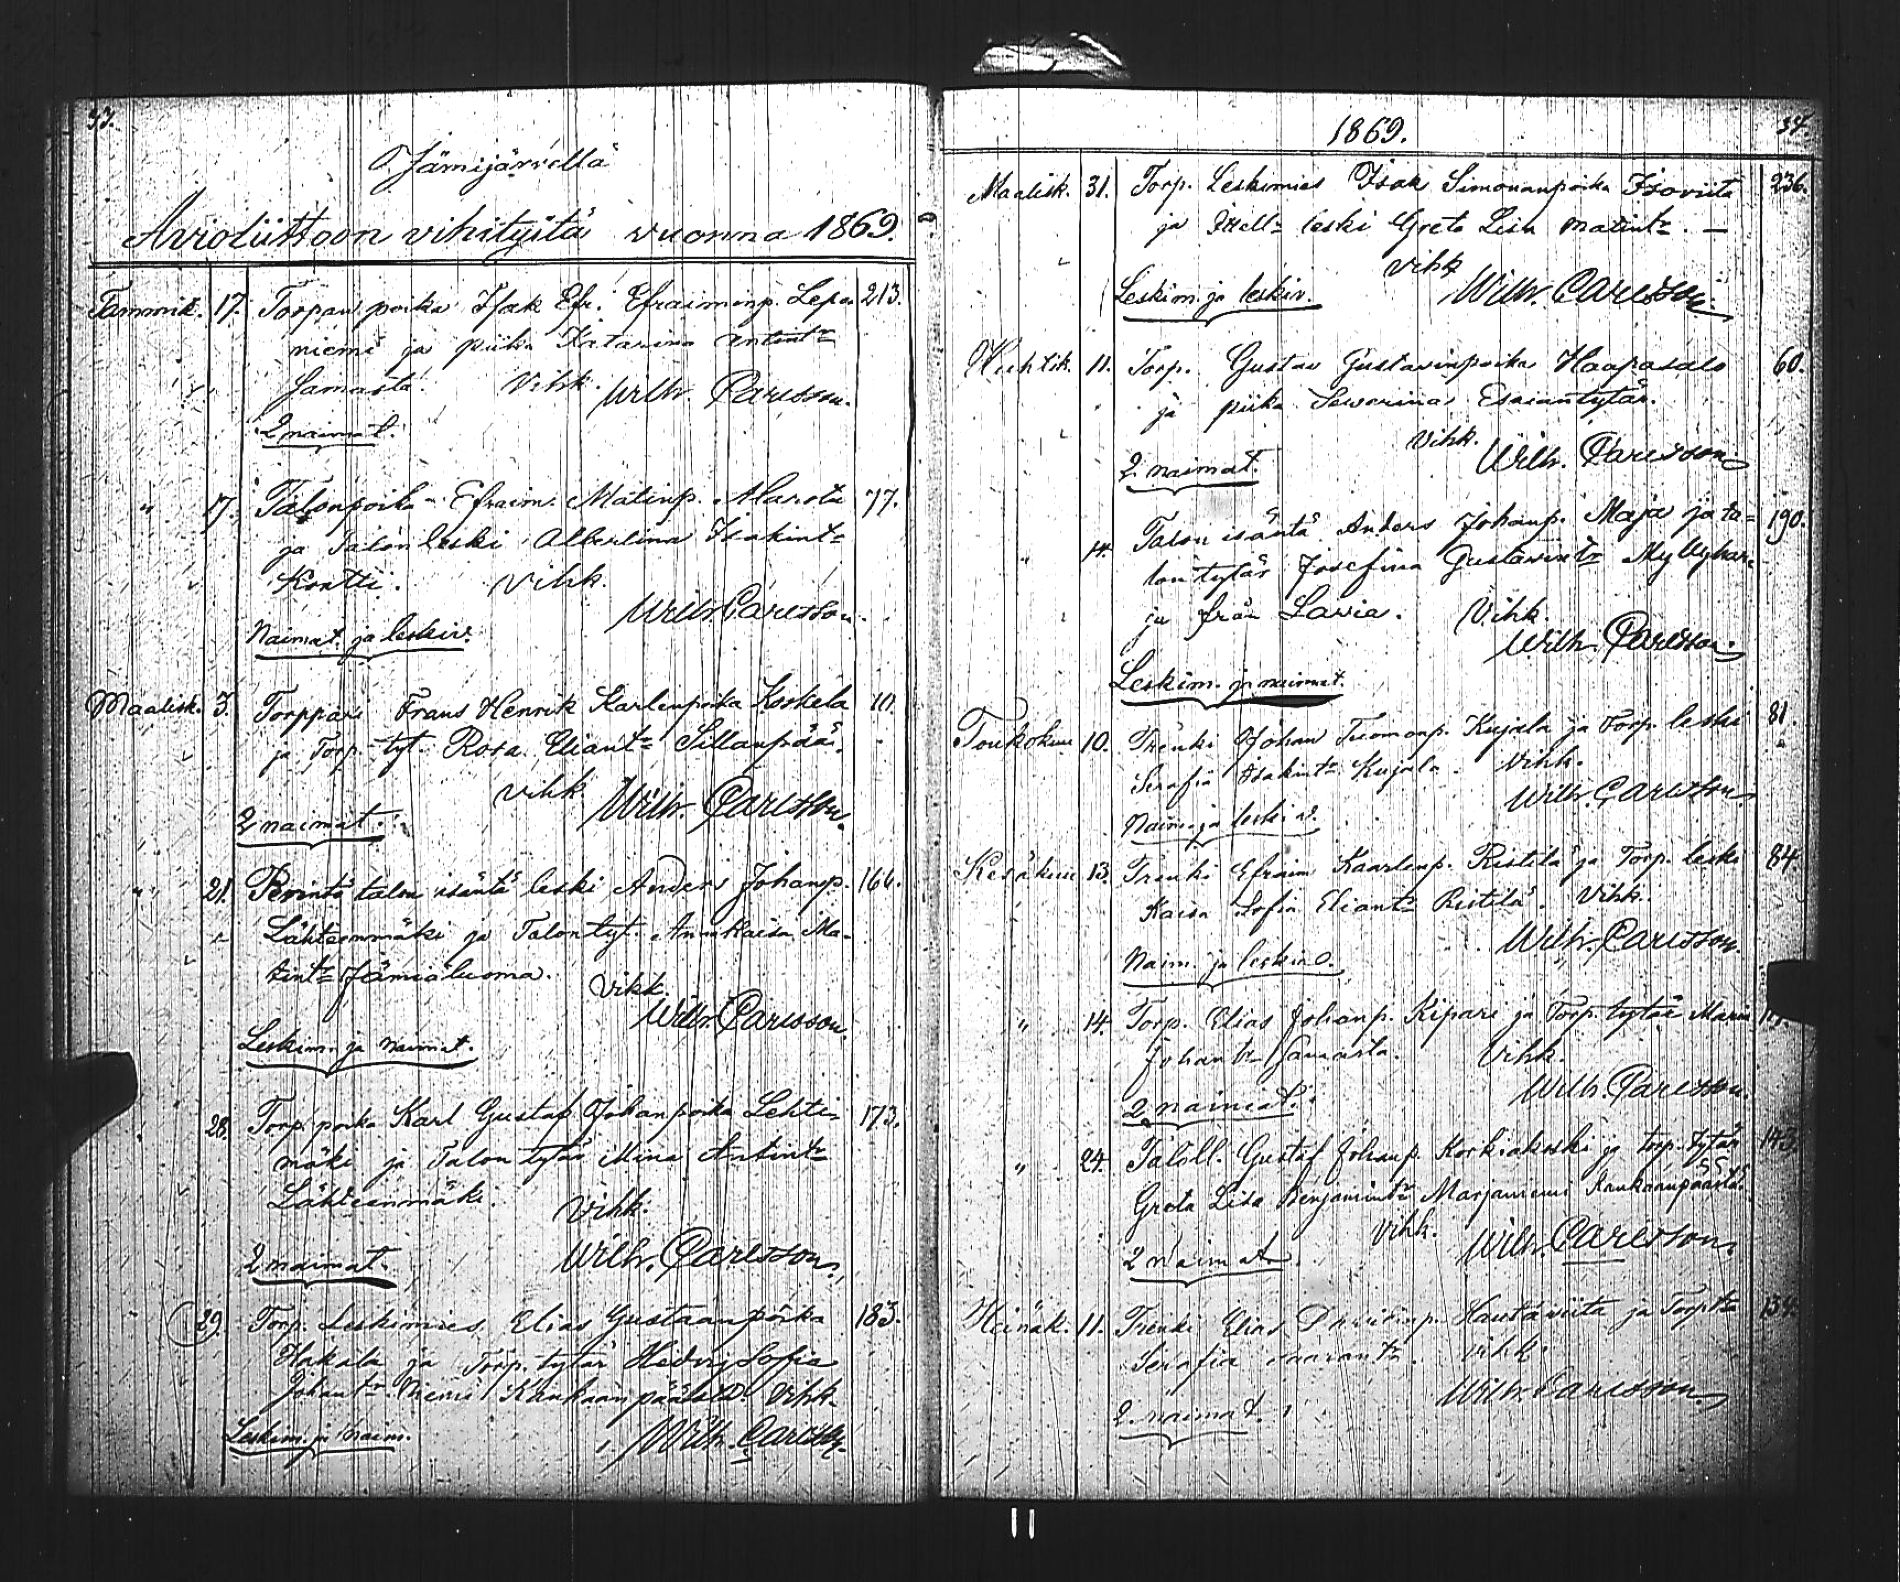 33.
Jämijärvellä
Avioliittoon vihityitä vuonna 1869.
Tammik. 17. Torpan poika Isak Efr. Efraiminp. Lepä 213.
niemi ja piika Katarina Antintr
Jamasta. Vihk. Wilh. Carlsson.
2 naimat.
" 17. Talonpoika Efraim Matinp. Alarota 77.
ja Talon leski Albertina Isakintr
Kontti. Vihk.
Wilh. Carlsson.
Naimat. ja leskiv.
Maalisk. 3. Torppari Frans Henrik Karlenpoika Koskela 10.
ja Torp. tyt. Rosa Eliantr Sillanpää.
Vihk. Wilh. Carlsson.
2 naimat.
" 21. Perintö talon isäntä leski Anders Johanp. 166.
Lähteenmäki ja Talontyt. Anna Kaisa Ma-
tintr Jämiäluoma. Vihk.
Wilh. Carlsson.
Leskim. ja naimat.
28. Torp. poika Karl Gustaf Johanpoika Lehti- 173.
mäki ja Talon tytär Mina Antintr
Lähteenmäki. Vihk.
2 naimat. Wilh. Carlsson.
" 29. Torp. Leskimies Elias Gustaanpoika 183.
Hakala ja Torp. tytär Hedvig Sofia
Johantr Niemi Kankaanpäästä. Vihk.
Leskim. ja naim. Wilh. Carlsson.
1869. 34.
Maalisk. 31. Torp. Leskimies Isak Simonanpoika Isoviita 236.
ja leski Greta Lisa Matintr. —
Vihk.
Leskim. ja leskiv. Wilh. Carlsson.
Huhtik. 11. Torp. Gustav Gustavinpoika Haapasalo 60.
ja piika Severina Esaiantytär.
Vihk.
2. naimat. Wilh. Carlsson.
" 14. Talon isäntä Anders Johanp. Maja ja ta= 190.
lon tytär Josefina Gustavintr Myllyhar-
ju från Lavia. Vihk.
Wilh. Carlsson.
Leskim. ja naimat.
Toukokuu 10. Trenki Johan Tuomonp. Kujala ja Torp. leski 81.
Serafia Isakintr Kujala. Vihk.
Wilh. Carlsson.
Naim. ja leskiv.
Kesäkuu 13. Trenki Efraim Kaarlenp. Ristilä ja Torp. leski 84.
Kaisa Sofia Eliantr Ristilä. Vihk.
Wilh. Carlsson.
Naim. ja leskiv.
" 14. Torp. Elias Johanp. Kipari ja Torp. tytär Maria
Johantr Samasta. Vihk.
Wilh. Carlsson.
2 naimat.
" 24. Taloll. Gustaf Johanp. Korkiakoski ja torp. tytär 143.
Greta Lisa Benjamintr Marjaniemi Kankaanpäästä.
Vihk. Wilh. Carlsson.
2 naimat.
Heinäk. 11. Trenki Elias Davidinp. Hautaviita ja Torp. tr 134.
Serafia. Vihk.
Wilh. Carlsson.
2. naimat.
11